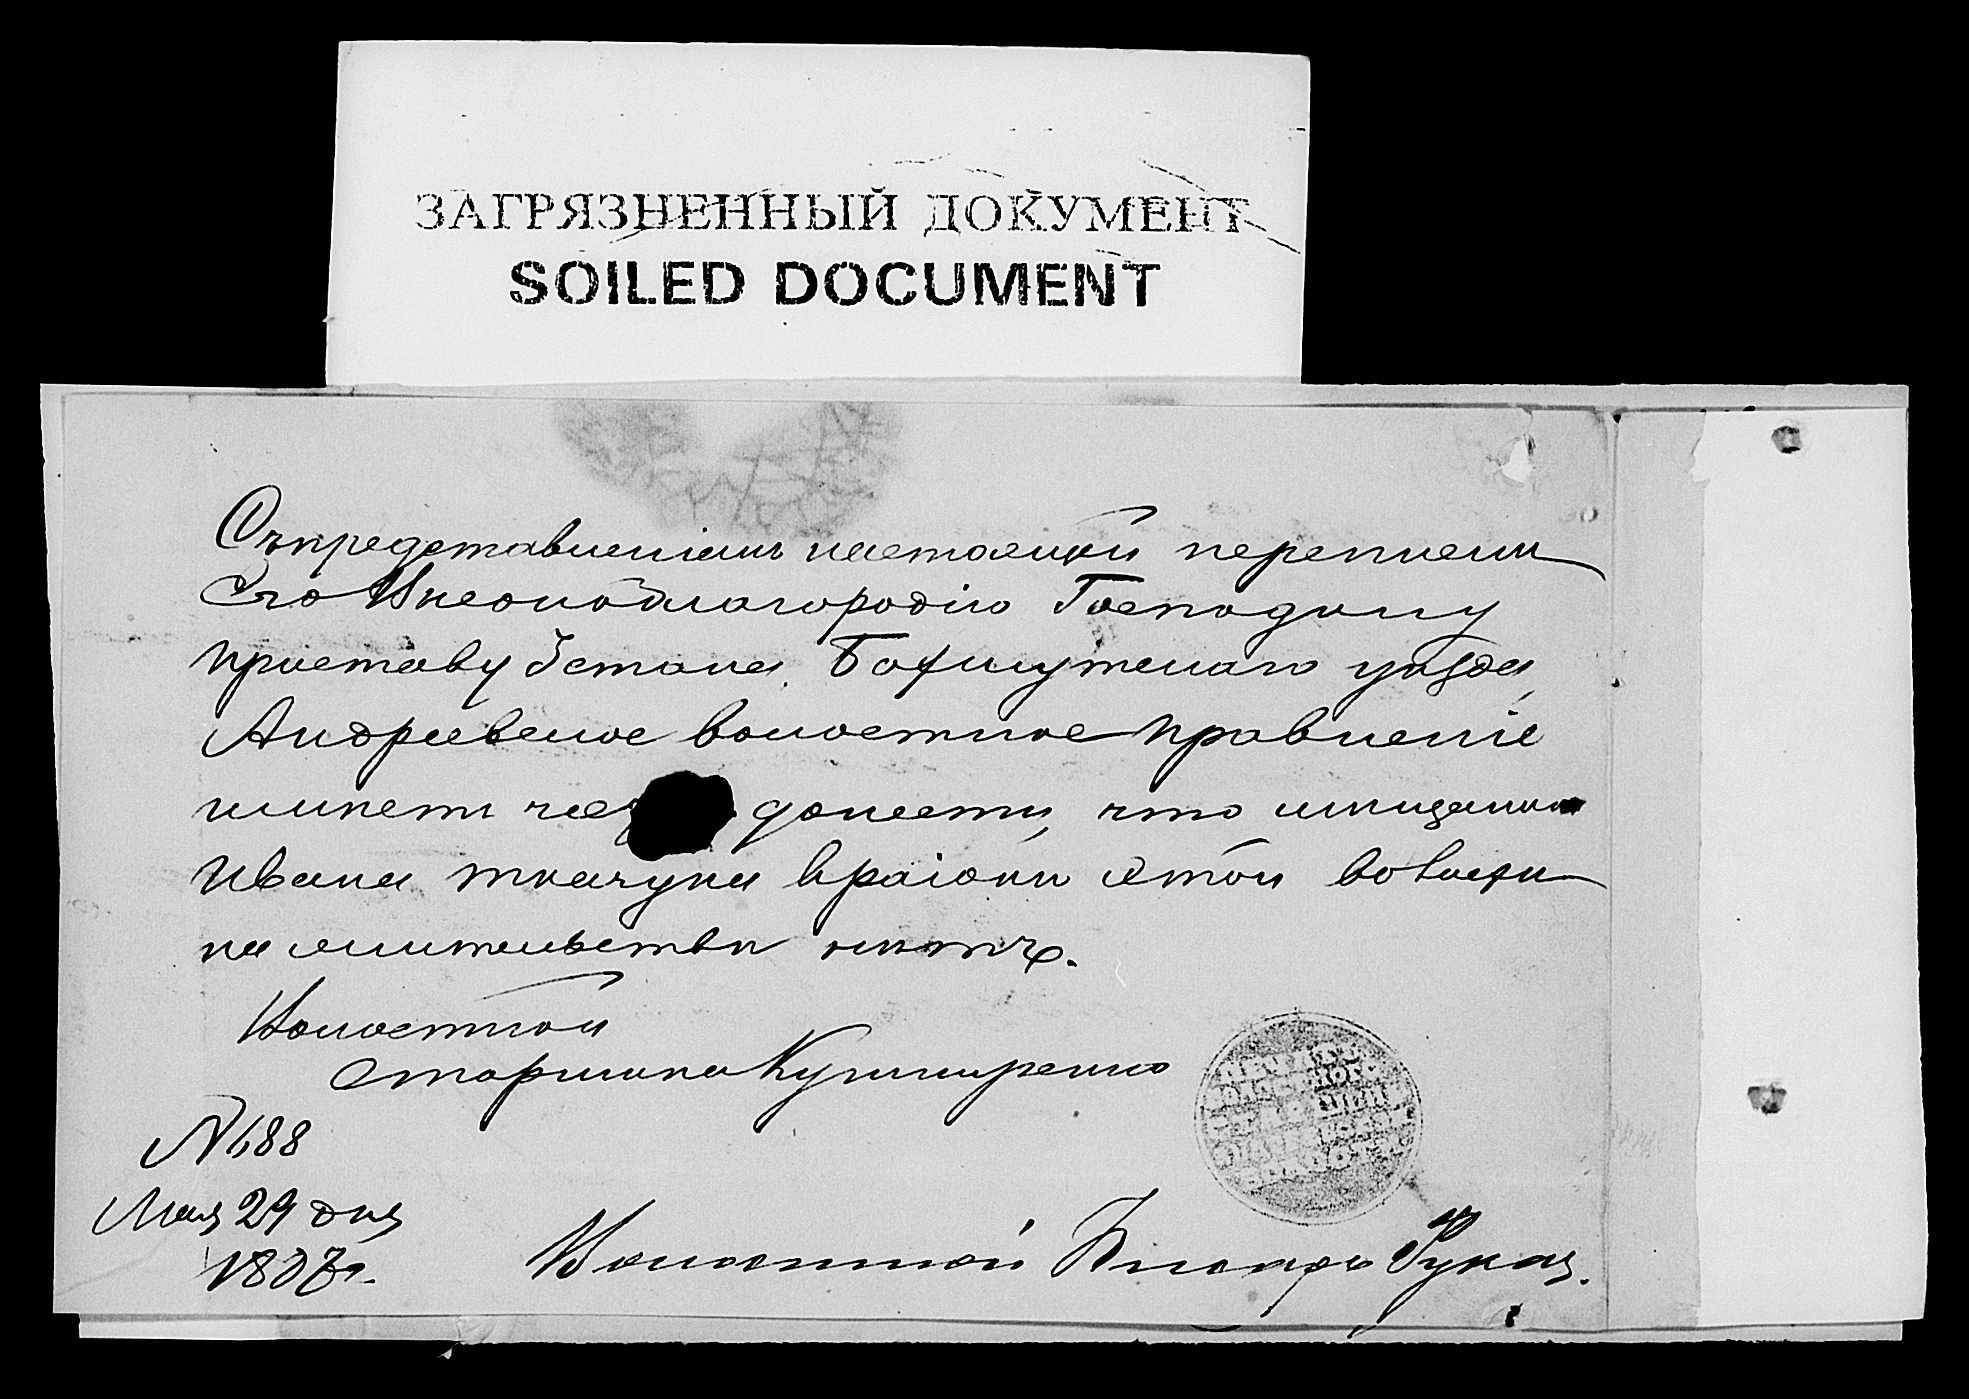 ЗАГРЯЗНЕННЫЙ ДОКУМЕНТ
SOILED DOCUMENT
Съ представленіемъ настоящей переписки
Его Высокоблагородію Господину
Приставу 3 стана, Бахмутскаго уѣзда,
Андреевское волостное Правленіе
имѣетъ честь донести, что мѣщанина
Ивана Ткачука в раіонѣ этой волости
на жительствѣ нѣтъ.
Волостной
Старшина Кушниренко
№ 688
Мая 29 дня
Волостной Писарь